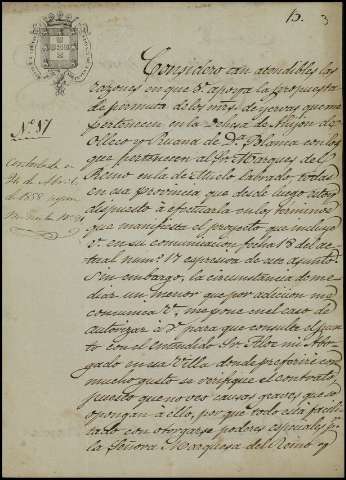 D. 3
Nº. 87
Contestada en
de Abril
de 1858
Considero tan atendibles las
razones en que V. apoya la propuesta
de permuta de los mrs. de yervas que me
pertenecen en la Dehesa de
y de Dª. Blanca con los
que pertenecen al Sr. Marques del
Reino en la de Suelo Labrado, todas
en esa provincia, que desde luego estoy
dispuesto á efectuarla en los terminos
que manifiesta el proyecto que incluye
V. en su comunicacion fecha 18 del ac-
tual num.º 17 expresiva de este asunto.
Sin embargo, la circunstancia de me-
diar un menor que por adicion me
comunica V. me pone en el caso de
autorizar á V. para que consulte el pun-
to con el entendido Sr. mi Abo-
gado en esa Villa donde preferiré con
mucho gusto se verifique el contrato,
puesto que no veo causas graves que se
opongan á ello, por que todo está facili-
tado con otorgarse poderes especiales pr.
la Señora Marquesa del Reino y